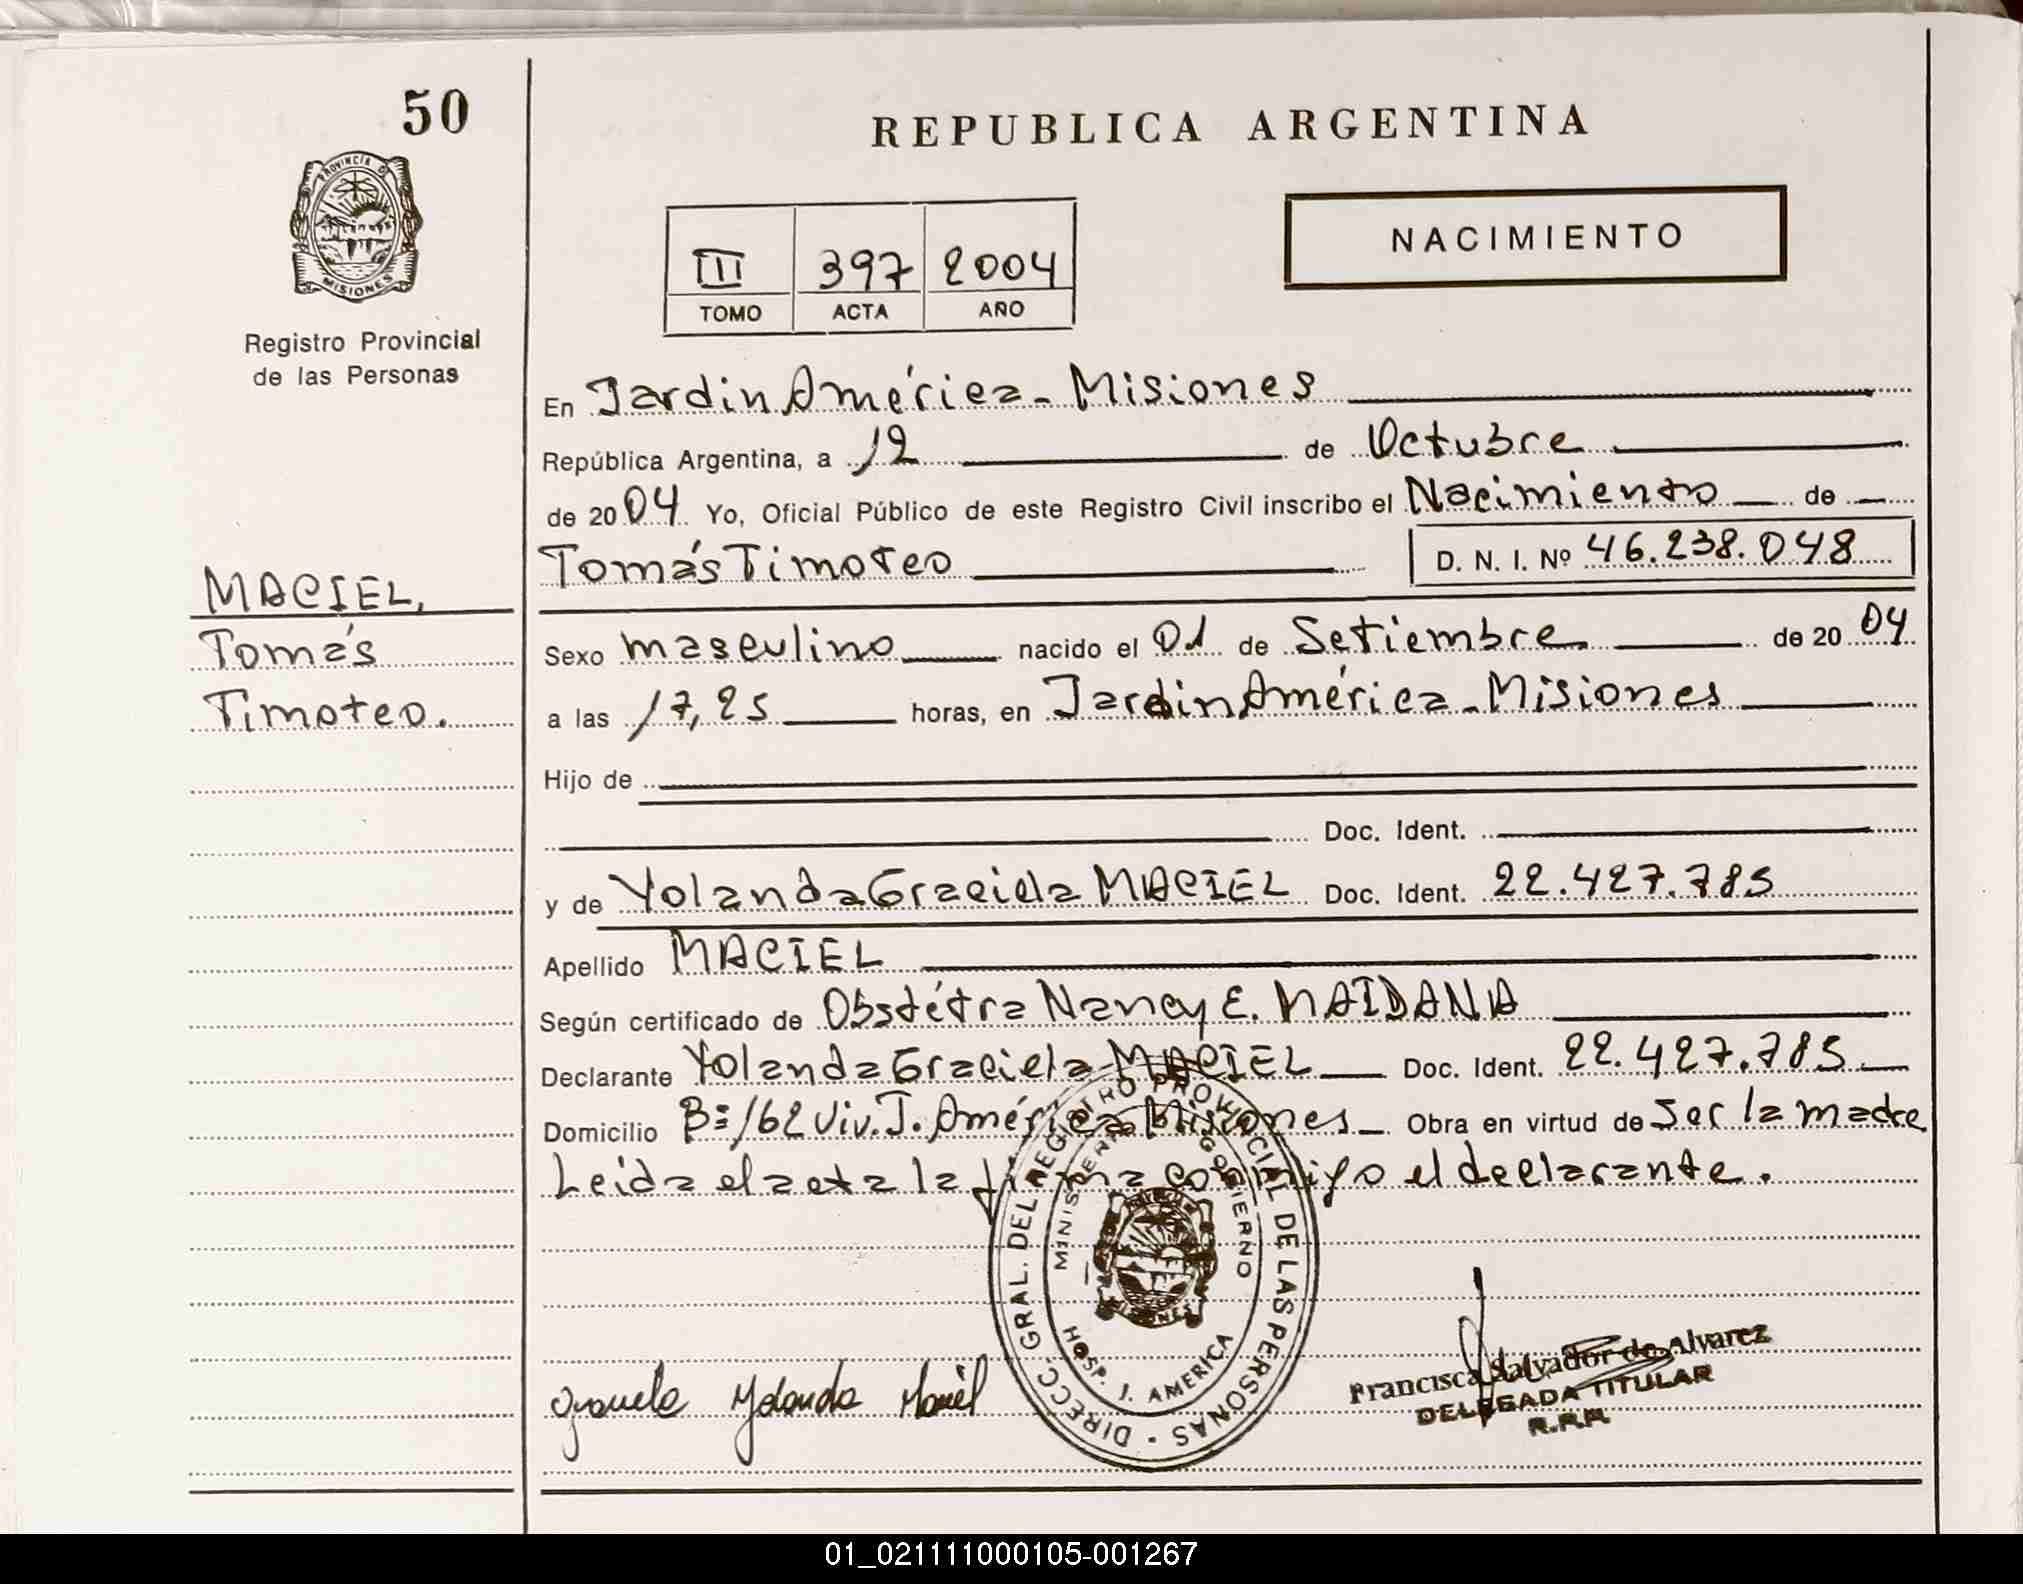 50
REPUBLICA ARGENTINA
PROVINCIA DE
MISIONES
NACIMIENTO
III 397 2004
TOMO ACTA AÑO
Registro Provincial
de las Personas
En Jardin América - Misiones
República Argentina, a 12 de Octubre
de 2004 Yo, Oficial Público de este Registro Civil inscribo el Nacimiento de
Tomás Timoteo D. N. I. Nº 46.238.048
MACIEL,
Tomás
Timoteo.
Sexo masculino nacido el 01 de Setiembre de 2004
a las 17,25 horas, en Jardin América - Misiones
Hijo de
Doc. Ident.
y de Yolanda Graciela MACIEL Doc. Ident. 22.427.785
Apellido MACIEL
Según certificado de Obstétra Nancy E. MAIDANA
Declarante Yolanda Graciela MACIEL Doc. Ident. 22.427.785
Domicilio Bº 162 Viv. J. América Misiones Obra en virtud de Ser la madre
Leida el acta la firma conmigo el declarante.
DIRECC. GRAL. DEL REGISTRO PROVINCIAL DE LAS PERSONAS
MINISTERIO GOBIERNO
HOSP. J. AMERICA
MISIONES
Yolanda
Francisca Salvador de Alvarez
DELEGADA TITULAR
R.P.P.
01_021111000105-001267